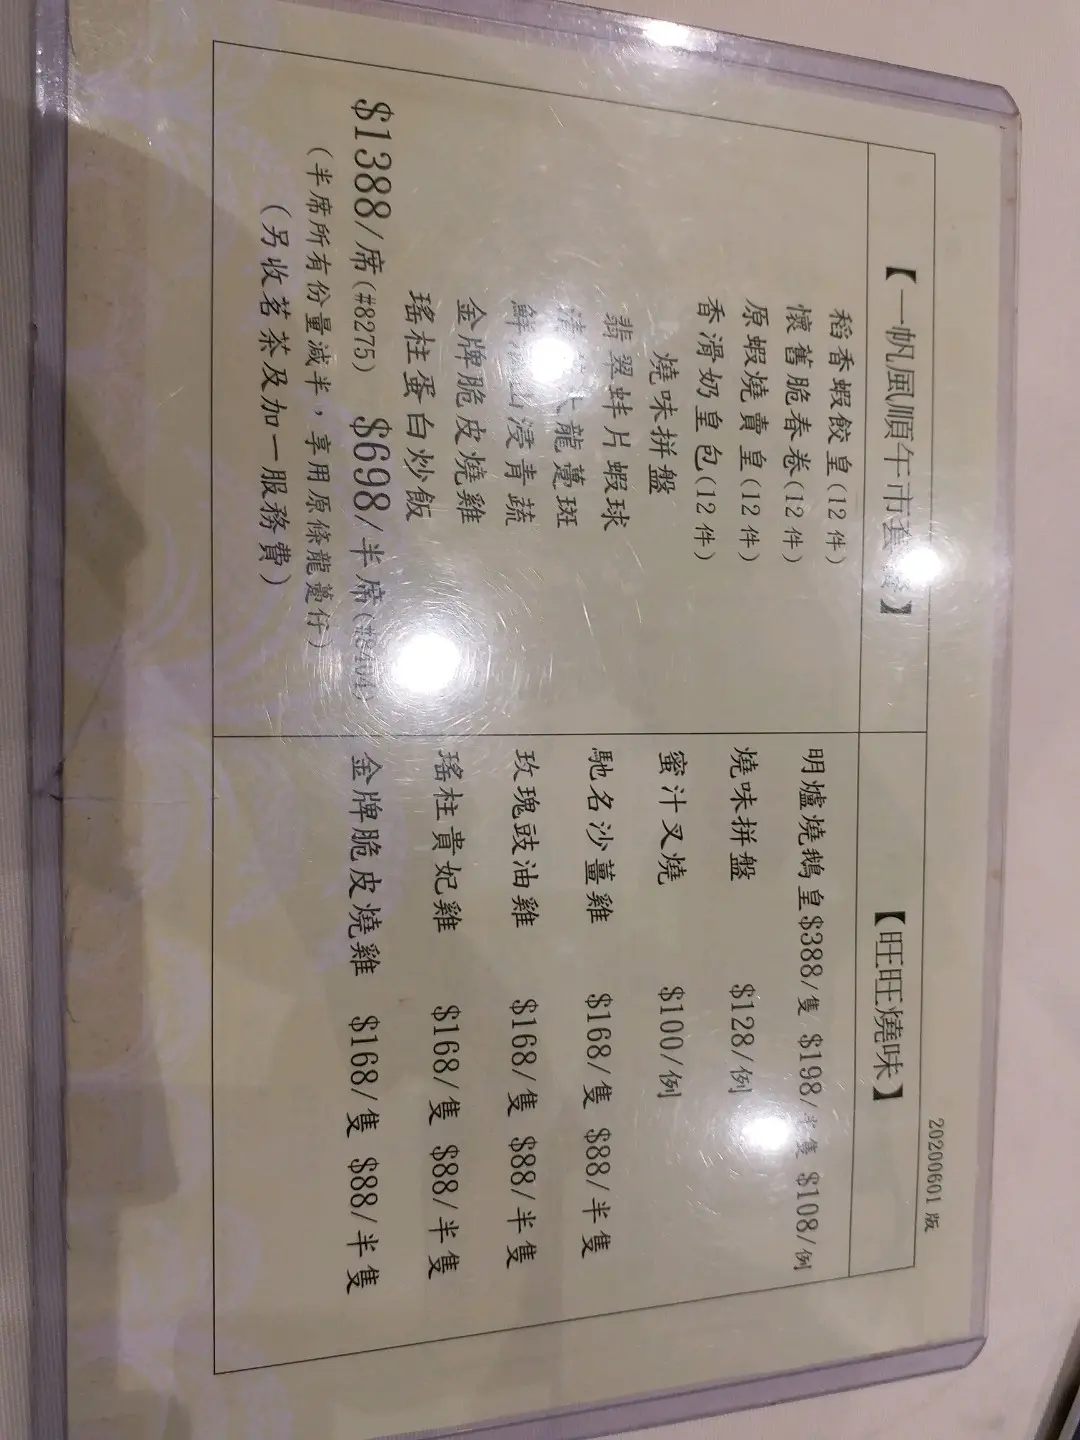 20200601 版
【一帆風順午市套餐】
稻香蝦餃皇(12 件)
懷舊脆春卷(12 件)
原蝦燒賣皇(12 件)
香滑奶皇包(12 件)
燒味拼盤
翡翠蚌片蝦球
龍躉斑
浸青蔬
金牌脆皮燒雞
瑤柱蛋白炒飯
$1388/席(#8275) $698/半席
(半席所有份量減半，享用原條龍躉仔)
(另收茗茶及加一服務費)
【旺旺燒味】
明爐燒鵝皇$388/隻 $198/半隻 $108/例
燒味拼盤 $128/例
蜜汁叉燒 $100/例
馳名沙薑雞 $168/隻 $88/半隻
玫瑰豉油雞 $168/隻 $88/半隻
瑤柱貴妃雞 $168/隻 $88/半隻
金牌脆皮燒雞 $168/隻 $88/半隻